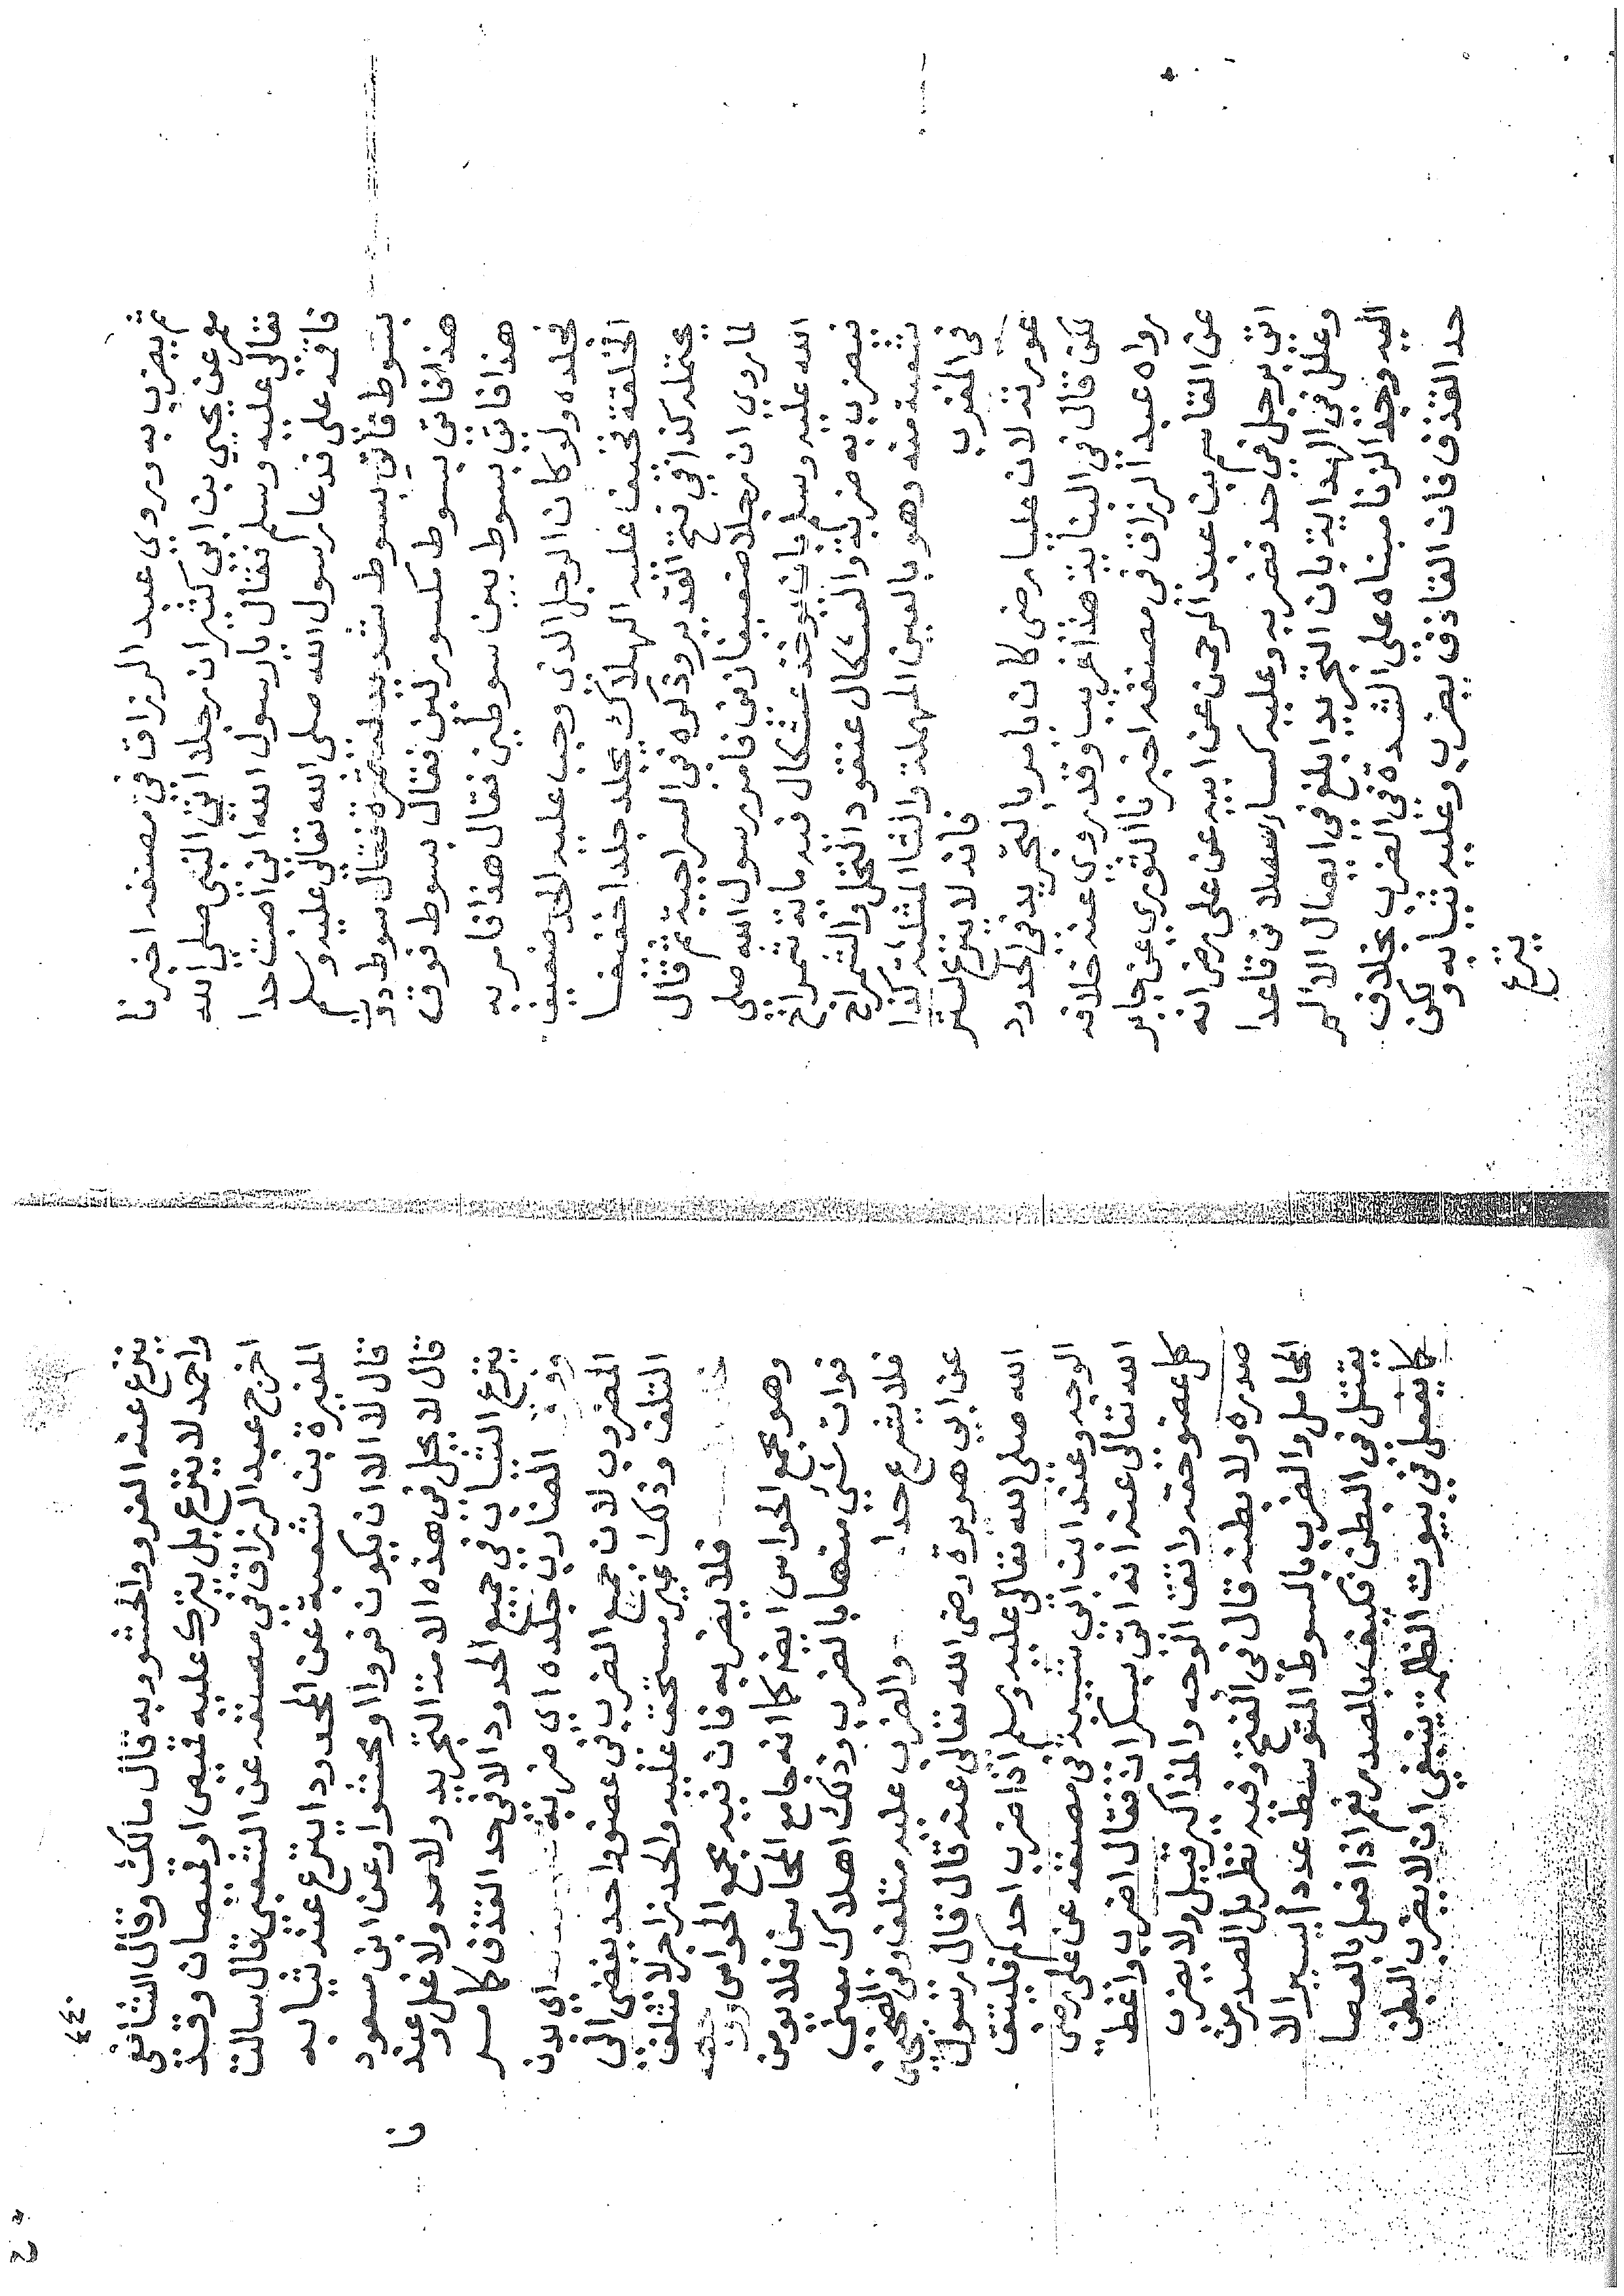 ثم يضرب به وروى عبد الرزاق في مصنفه اخبرنا
معمر عن يحيى بن ابى كثير ان رجلا اتى النبي صلى الله
تعالى عليه وسلم فقال يا رسول الله انى اصبت حدا
فاقمه على فدعا رسول الله صلى الله تعالى عليه وسلم
بسوط فأتي بسوط شديد له ثمرة فقال سوط دون
هذا فاتى بسوط مكسور لين فقال بسوط فوق
هذا فاتى بسوط بين سوطين فقال هذا فامر به
فجلده ولو كان الرجل الذى وجب عليه الحد ضعيف
الخلقة فخيف عليه الهلاك يجلد جلدا خفيفا
يحتمله كذا في فتح القدير وذكره في السراجية ثم قال
لما روى ان رجلا ضعيفا زنى فامر رسول الله صلى
الله عليه وسلم بان يوخذ عثكال فيه مائة شمراخ
فيضرب به ضربة والعثكال عنقود النخل والشمراخ
شعبة منه وهو بالعين المهملة والثا المثلثة كذا
في المغرب فانه لا ينزع لستر
عورته لان عليا رضى كان يامر بالتجريد في الحدود
لكن قال في البناية هذا غريب وقد روى عنه خلافه
رواه عبد الرزاق في مصنفه اخبرنا الثورى عن جابر
عن القاسم بن عبد الرحمن عن ابيه عن على رضى انه
اتى برجل في حد فضربه وعليه كسا قسطلانى قاعدا
وعلل في الهداية بان التجريد ابلغ في ايصال الالم
اليه وحد الزنا مبناه على الشدة في الضرب بخلاف
حد القذف فان القاذف يضرب وعليه ثيابه ولكن
ينزع
٤٤٠
ينزع عنه الفرو والحشو وبه قال مالك وقال الشافعى
واحمد لا ينزع بل يترك عليه قميص او قميصان وقد
اخرج عبد الرزاق في مصنفه عن الشعبى قال سالت
المغيرة بن شعبة عن المحدود اينزع عنه ثيابه
قال لا الا ان يكون فروا او محشوا وعن ابن مسعود
قال لا يحل في هذه الامة التجريد ولا مد ولا غل وعند
نا
ينزع الثياب في جميع الحدود الا في حد القذف كما مر
الضارب جلده اى ضربه اى بدن
المضروب لان جميع الضرب في عضو واحد يفضى الى
التلف وذلك غير مستحق عليه والحد زاجر لا متلف
فلا يضربه فان فيه مجمع الحواس
وهو مجمع الحواس ايضا كما انه جامع المحاسن فلا يومن
فوات شئ منها بالضرب وذلك اهلاك معنى
فلا يشرع حدا والضرب عليه متلف وفى الصحيحين
عن ابى هريرة رضى الله تعالى عنه قال قال رسول
الله صلى الله تعالى عليه وسلم اذا ضرب احدكم فليتق
الوجه وعند ابن ابى شيبة في مصنفه عن على رضى
الله تعالى عنه انه اتى بسكران فقال اضرب واعط
كل عضو حقه واتق الوجه والمذاكير قيل ولا يضرب
صدره ولا بطنه قال في الفتح وفيه نظر بل الصدر من
المحامل والضرب بالسوط المتوسط عددا يسيرا لا
يقتل في البطن فكيف بالصدر نعم اذا فعل بالعصا
كما يفعل في بيوت الظلمة ينبغى ان لا يضرب البطن